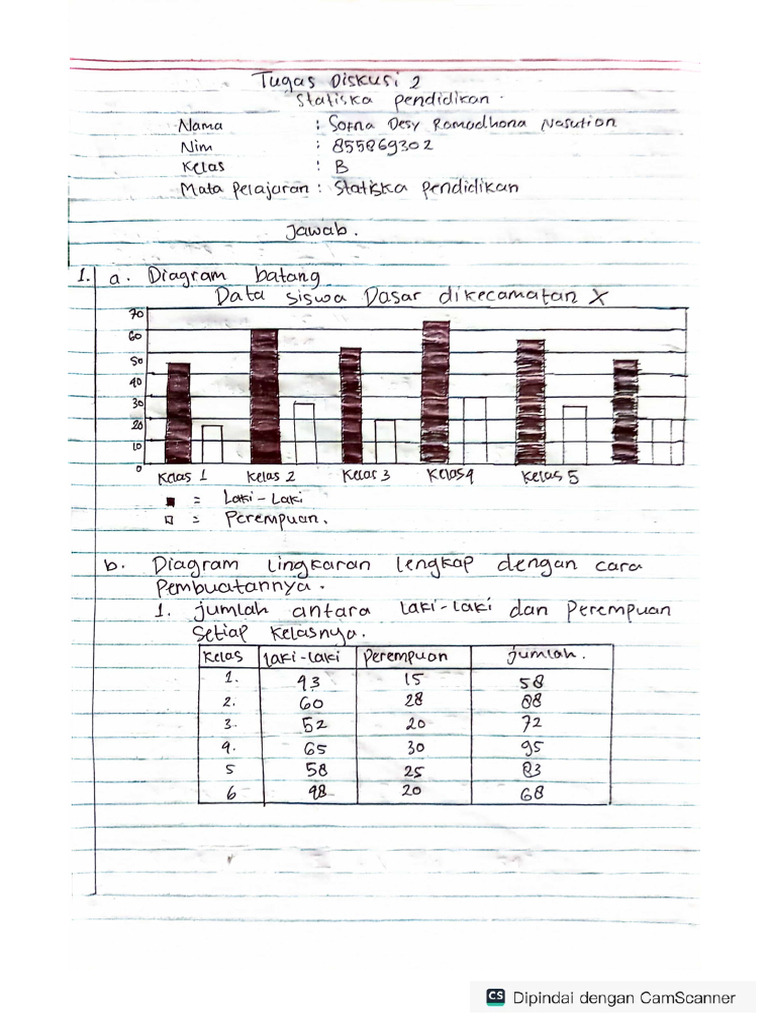 Tugas Diskusi 2
Statiska pendidikan.
Nama : Sofna Desy Romadhona Nasution
Nim : 855869302
Kelas : B
Mata Pelajaran : Statiska pendidikan
Jawab.
1. a. Diagram batang
Data siswa Dasar dikecamatan X
70
60
50
40
30
20
10
0
Kelas 1 Kelas 2 Kelas 3 Kelas 4 Kelas 5
= Laki-Laki
= Perempuan.
b. Diagram lingkaran lengkap dengan cara
Pembuatannya.
1. jumlah antara laki-laki dan Perempuan
Setiap Kelasnya.
Kelas laki-laki Perempuan jumlah.
1. 43 15 58
2. 60 28 88
3. 52 20 72
4. 65 30 95
5 58 25 83
6 48 20 68
CS Dipindai dengan CamScanner